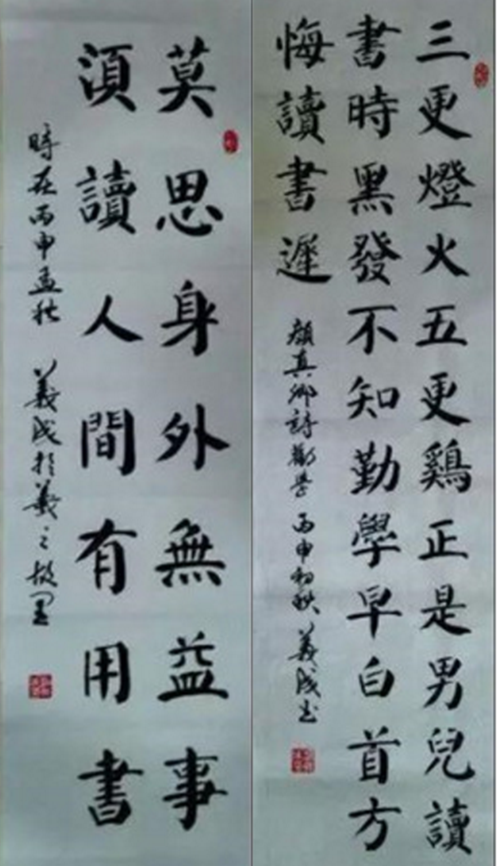 三更燈火五更鷄正是男兒讀
書時黑發不知勤學早白首方
悔讀書遲
顔真卿詩勸學 丙申初秋 義成書
莫思身外無益事
須讀人間有用書
時在丙申孟秋 義成於羲之故里